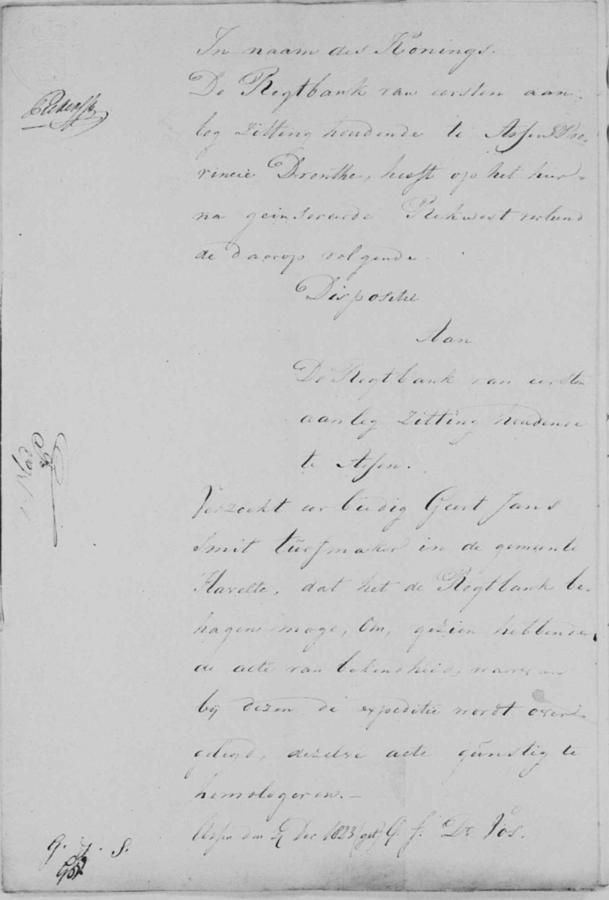 In naam des Konings.
De Regtbank van eersten aan-
leg zitting houdende te Assen Pro-
vincie Drenthe, heeft op het hier-
na geinsereerde Rekwest verleend
de daarop volgende.
Dispositie
Aan
De Regtbank van eersten
aanleg zitting houdende
te Assen.
Verzoekt eerbiedig Geert Jans
Smit turfmaker in de gemeente
Havelte, dat het de Regtbank be-
hagen moge, Om, gezien hebbende
de acte van bekendheid, waarvan
bij dezen de expeditie wordt over-
gelegd, dezelve acte gunstig te
homologeren.-
Assen den Dec 1823 (get) G. J. De Vos.
G. J. S.